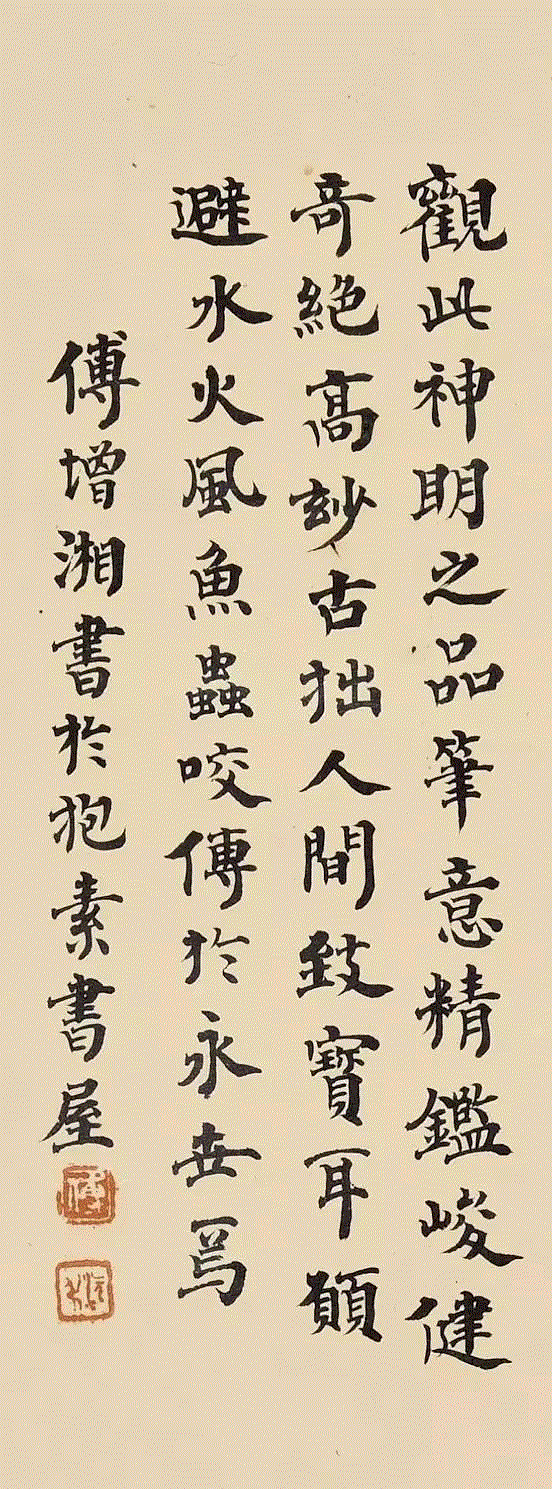 觀此神明之品筆意精鑑峻健
奇絕高玅古拙人間致寶耳願
避水火風魚蟲咬傳於永世焉
傅增湘書於抱素書屋